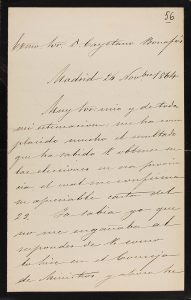 56
Excmo Sor. D. Cayetano Bonafós
Madrid 24 Novbre 1864.
Muy Sor mio y de toda
mi estimacion: me ha com
placido mucho el resultado
que ha sabido V. obtener en
las elecciones en esa provin
cia el cual me confirma
su apreciable carta del
22. Ya sabia yo que
no me engañaba al
responder de V. como
lo hice en el Consejo
de Ministros y ahora he